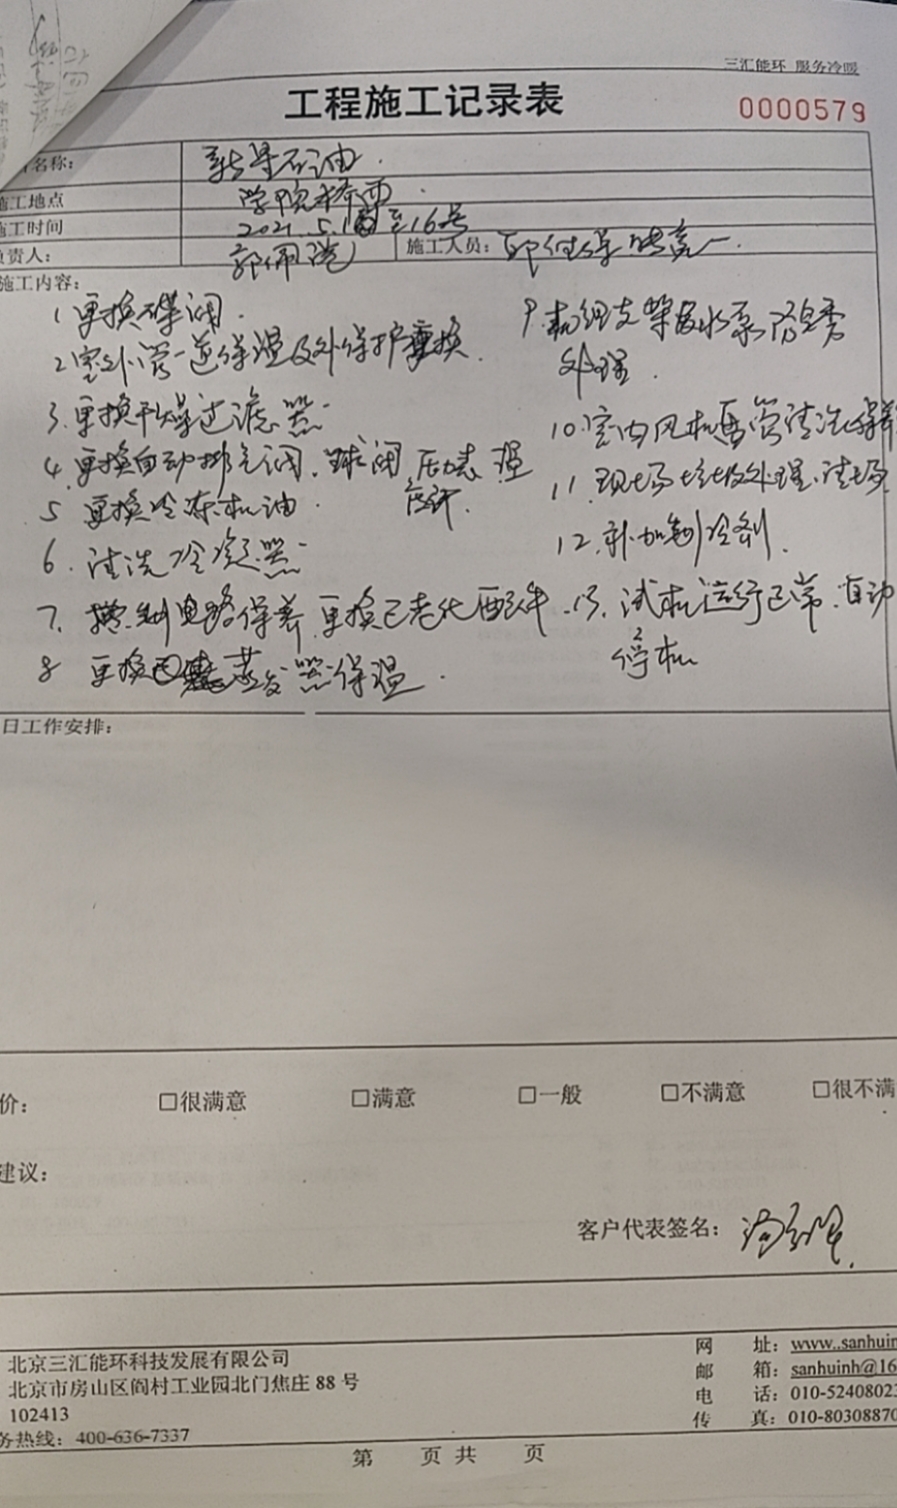 三汇能环 服务冷暖
工程施工记录表
0000579
名称:
石油
施工地点 学院桥西
施工时间 2021.5. 至16号
负责人: 郭
施工人员:
施工内容:
1 更换蝶阀.
2 室外管道保温及外保护更换
3. 更换干燥过滤器
4. 更换自动排气阀.球阀 压力表 温
度计.
5 更换冷冻机油.
6. 清洗冷凝器
7. 控制电路保养.更换已老化配件.
8 更换 蒸发器保温.
9.机组支架及水泵防锈
处理.
10.室内风机盘管清洗保养
11.现场垃圾处理.清场
12.补加制冷剂.
13.试机运行正常.自动
停机
日工作安排:
价: □很满意 □满意 □一般 □不满意 □很不满
建议:
客户代表签名:
北京三汇能环科技发展有限公司
北京市房山区阎村工业园北门焦庄 88 号
102413
务热线: 400-636-7337
网 址: www..sanhuin
邮 箱: sanhuinh@16
电 话: 010-52408023
传 真: 010-80308870
第 页 共 页